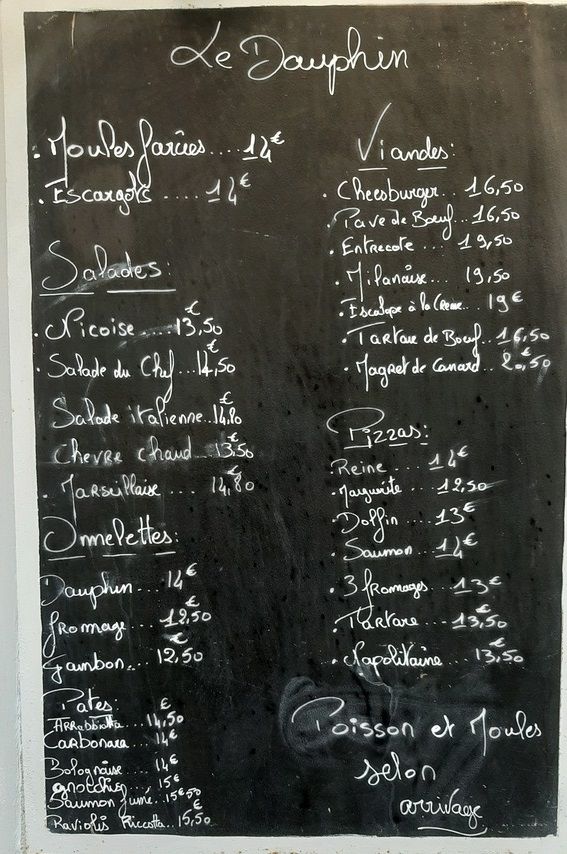 Le Dauphin
. Moules farcies .... 14€
. Escargots .... 14€
Salades:
. Nicoise ..... 13,50€
. Salade du Chef ... 14,50€
Salade italienne .. 14,80€
Chevre chaud ... 13,50€
. Marseillaise .... 14,80€
Ommelettes:
Dauphin ... 14€
fromage ... 12,50€
Jambon ... 12,50€
Pates:
ARRabbiatta ... 14,50€
Carbonara ... 14€
Bolognaise ... 14€
gnocchis 15€
Saumon fumé .. 15€50
Raviolis Riccotta .. 15,50€
Viandes:
. Cheesburger ... 16,50
. Pave de Bœuf ... 16,50
. Entrecote ... 19,50
. Milanaise ... 19,50
. Escalope à la Creme ... 19€
. Tartare de Bœuf ... 16,50
. Magret de Canard ... 20,50€
Pizzas:
Reine .... 14€
. Marguerite ... 12,50
. Dolfin ... 13€
. Saumon ... 14€
. 3 fromages ... 13€
. Tartare .... 13,50€
. Napolitaine ... 13,50€
Poisson et Moules
selon
arrivage